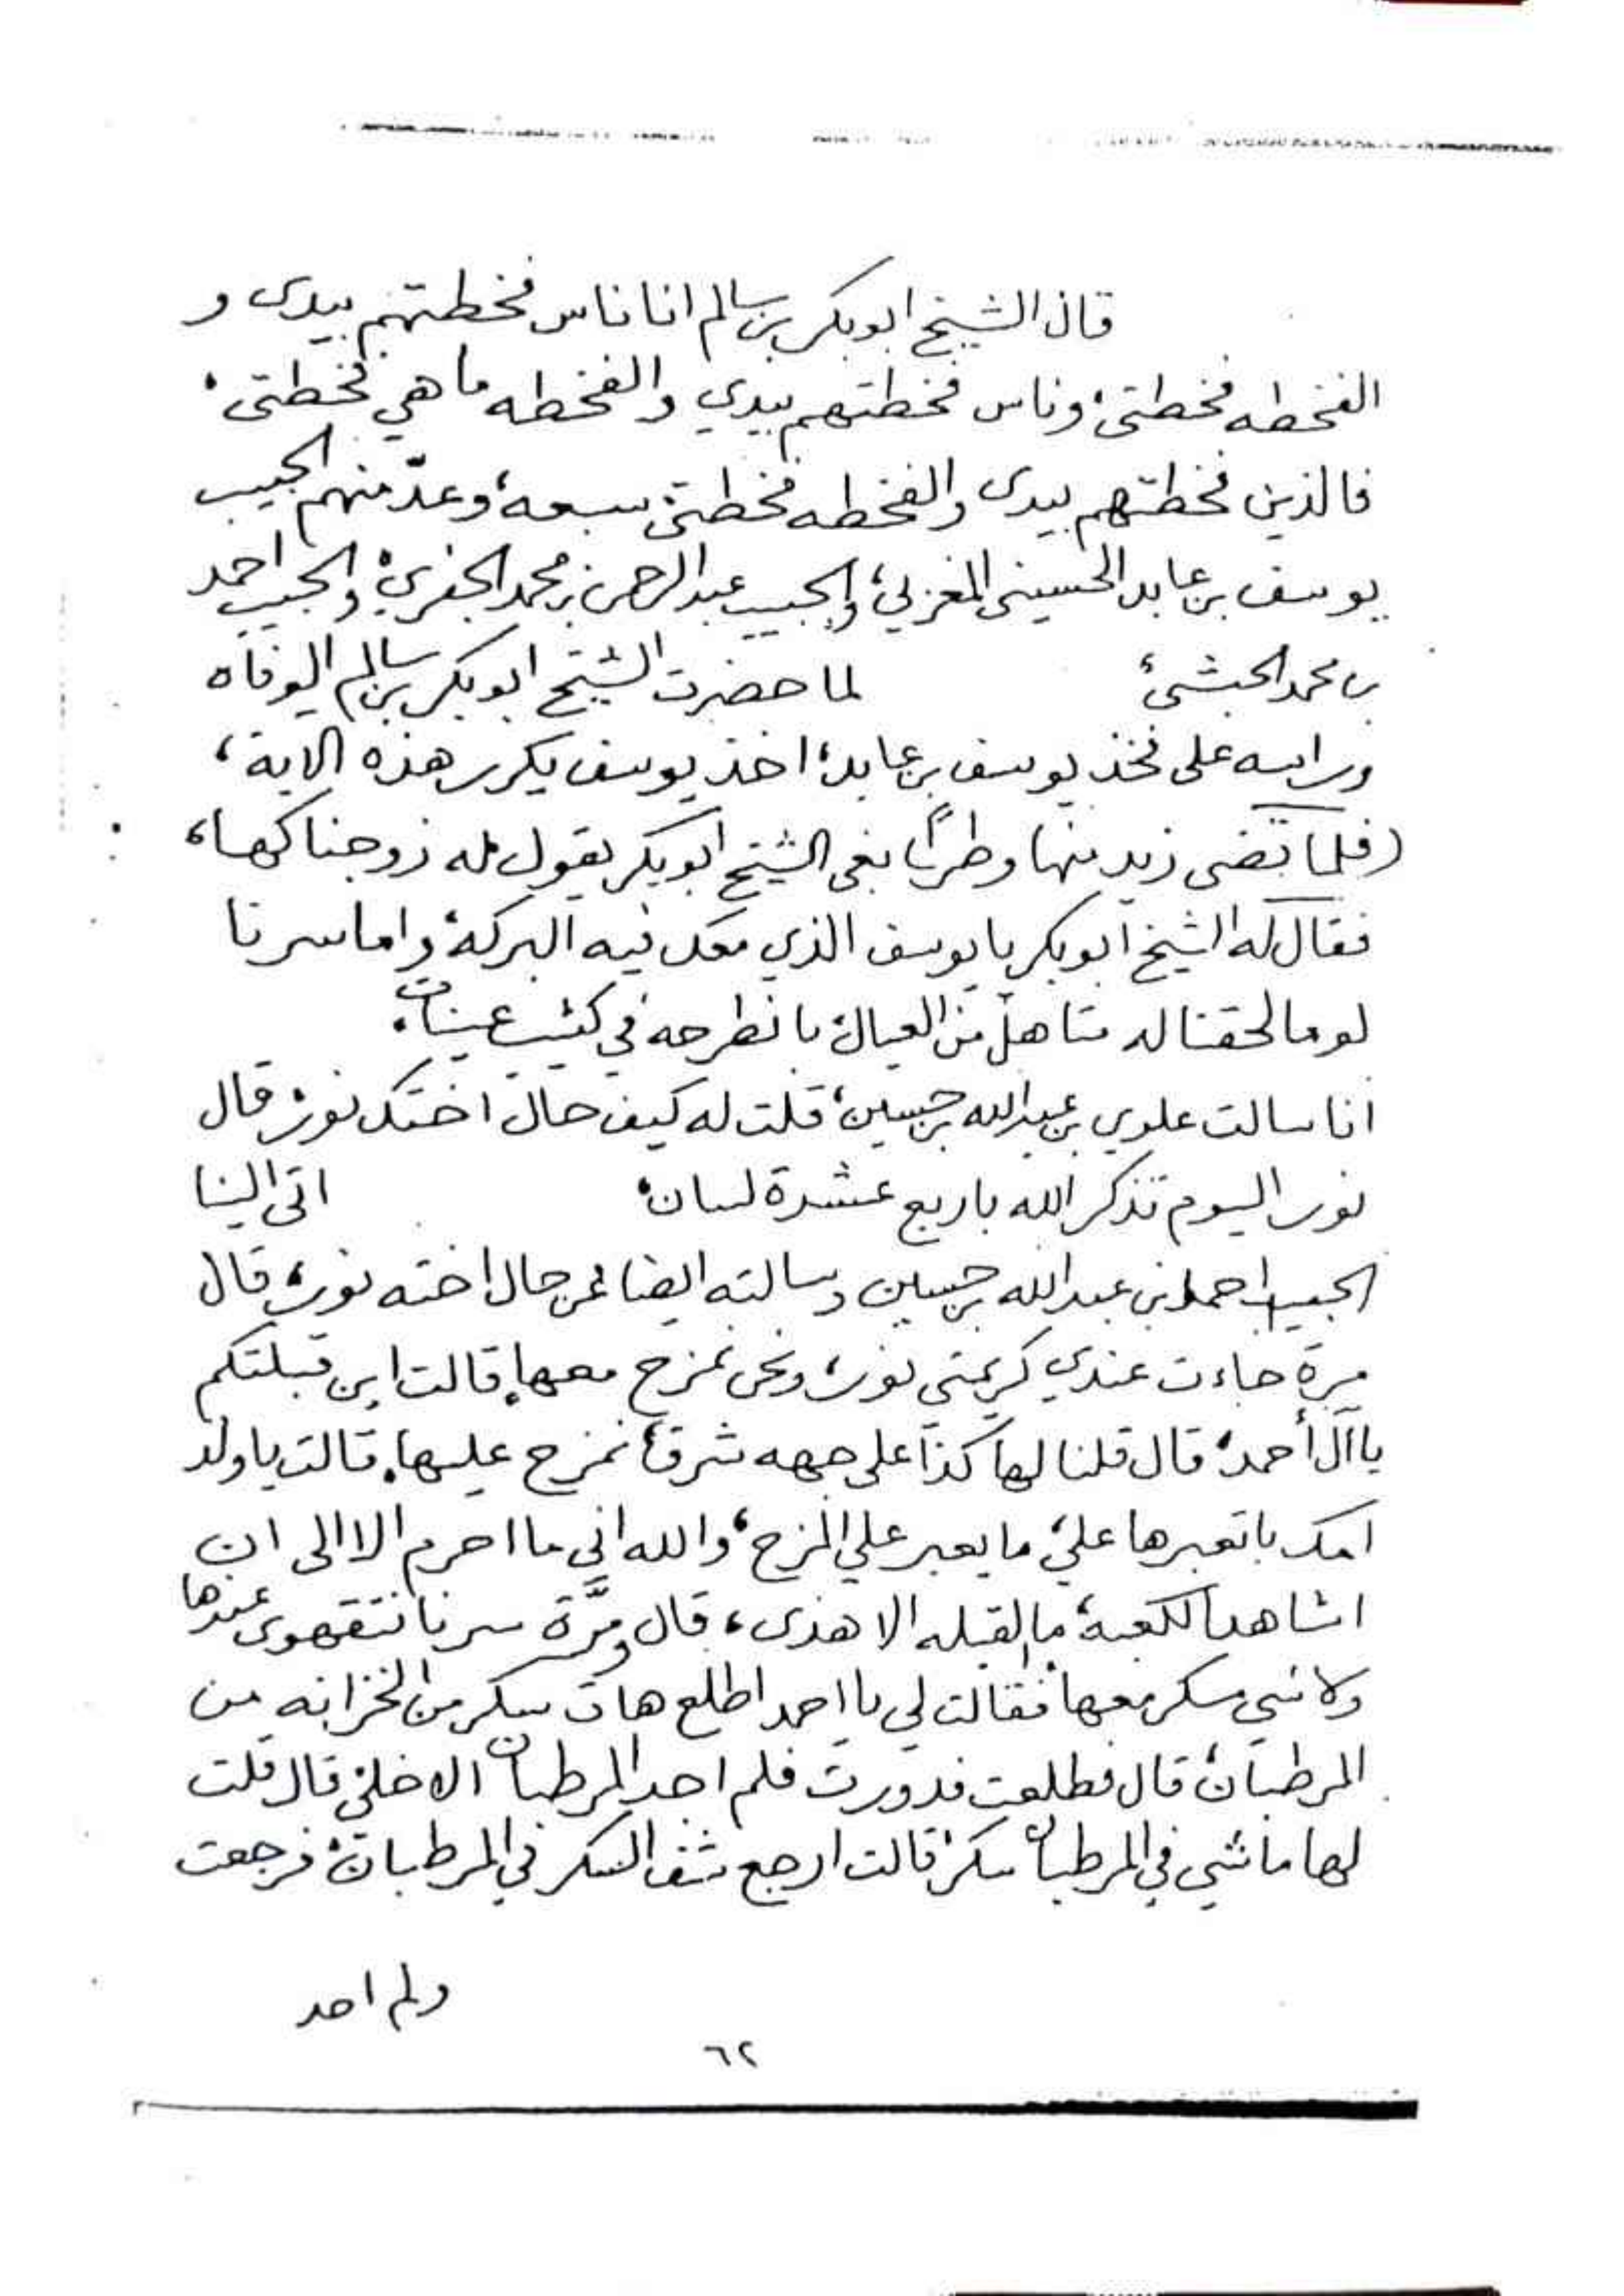 قال الشيخ ابوبكر بن سالم انا ناس فخطتهم بيدي و
الفخطه فخطتي، وناس فخطتهم بيدي والفخطه ما هي فخطتي،
فالذين فخطتهم بيدي والفخطه فخطتي سبعه، وعدّ منهم الحبيب
يوسف بن عابد الحسيني المغربي، والحبيب عبدالرحمن بن محمد الجفري، والحبيب احمد
بن محمد الحبشي، لما حضرت الشيخ ابوبكر بن سالم الوفاه
وراسه على فخذ يوسف بن عابد، اخذ يوسف يكرر هذه الاية،
(فلما قضى زيد منها وطرًا) بغى الشيخ ابوبكر يقول له زوجناكها،
فقال له الشيخ ابوبكر يا يوسف الذي معك فيه البركة، واما سرنا
لو ما لحقنا له متاهل من العيال، بانطرحه في كثيب عينات.
انا سالت علوي بن عبدالله بن حسين، قلت له كيف حال اختك نور، قال
نور اليوم تذكر الله باربع عشرة لسان، اتى الينا
الحبيب احمد بن عبدالله بن حسين وسالته ايضا عن حال اخته نور، قال
مرة جاءت عندي كريمتي نور، ونحن نمزح معها، قالت اين قبلتكم
يا آل أحمد، قال قلنا لها كذا على جهه شرق، نمزح عليها، قالت يا ولد
امك باتعبرها علي، ما يعبر علي المزح، والله اني ما احرم الا الى ان
اشاهد الكعبة، ما القبله الا هذي، قال ومرَّة سرنا نتقهوى عندها
ولا شي سكر معها، فقالت لي يا احمد اطلع هات سكر من الخزانه من
المرطبان، قال فطلعت فدورت فلم اجد المرطبان الا خلي، قال قلت
لها ماشي في المرطبان سكر، قالت ارجع شف السكر في المرطبان، فرجعت
ولم اجد
٦٢